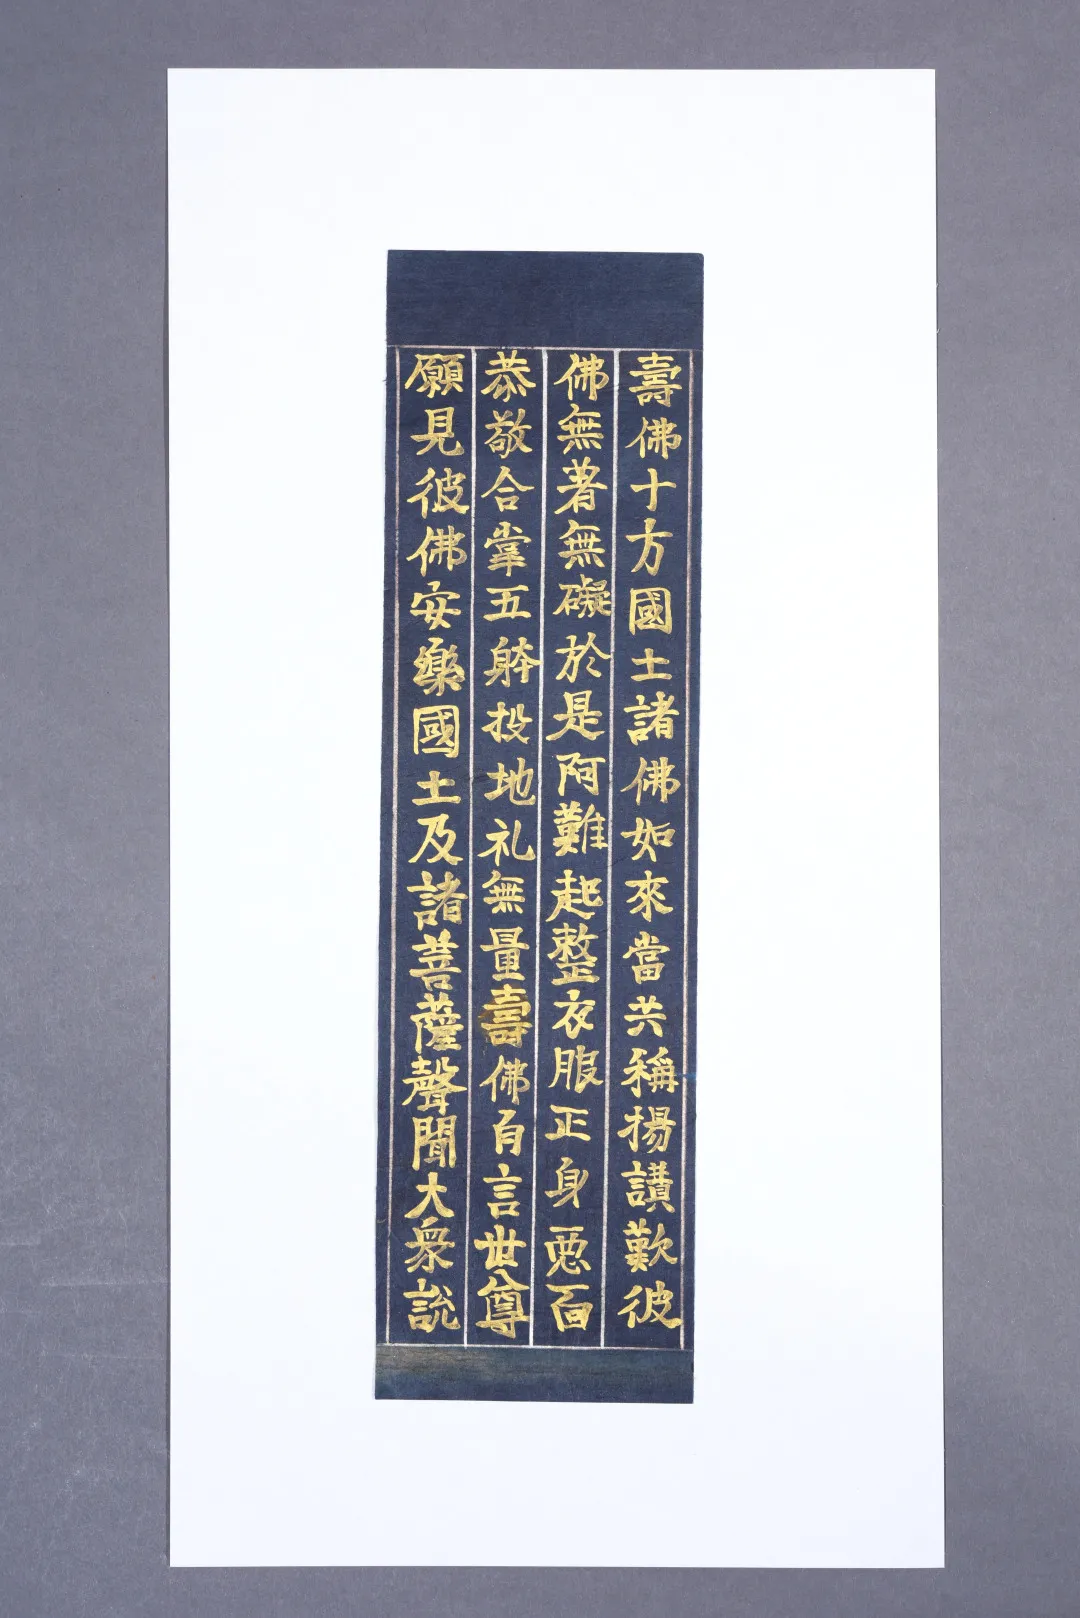 壽佛十方國土諸佛如來當共稱揚讃歎彼
佛無著無礙於是阿難起整衣服正身悪面
恭敬合掌五躰投地礼無量壽佛白言世尊
願見彼佛安樂國土及諸菩薩聲聞大衆説